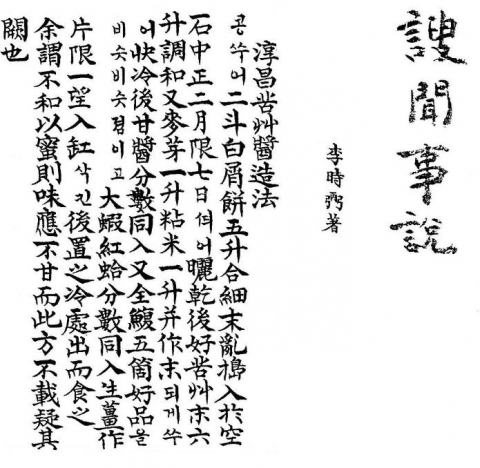 謏聞事說
李時弼著
淳昌苦艸醬造法
콩쑤어二斗白屑餠五升合細末亂搗入於空
石中正二月限七日어曬乾後好苦艸末六
升調和又麥芽一升粘米一升并作末되게쑤
어快冷後甘醬分數同入又全鰒五箇好品을
비슷비슷졈이고大蝦紅蛤分數同入生薑作
片限一望入缸삭킨後置之冷處出而食之
余謂不和以蜜則味應不甘而此方不載疑其
闕也